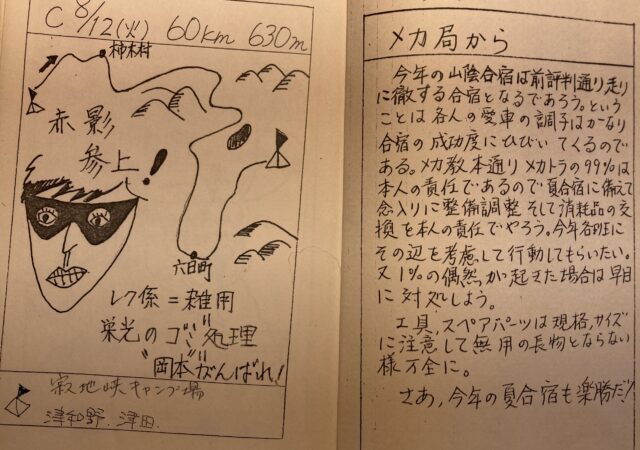 C 8/12(火) 60km 630m
柿木村
赤影
参上!
六日町
レク係=雑用
栄光のゴミ処理
"岡本がんばれ!
寂地峡キャンプ場
津和野. 津田.
メカ局から
今年の山陰合宿は前評判通り走り
に徹する合宿となるであろう。という
ことは各人の愛車の調子はかなり
合宿の成功度にひびいてくるのであ
る。メカ教本通りメカトラの99%は
本人の責任であるので夏合宿に備えて
念入りに整備調整そして消耗品の交
換を本人の責任でやろう。今年各班に
その辺を考慮して行動してもらいたい。
又1%の偶然が起きた場合は早目
に対処しよう。
工具,スペアパーツは規格,サイズ
に注意して無用の長物とならない
様万全に。
さあ,今年の夏合宿も楽勝だ!